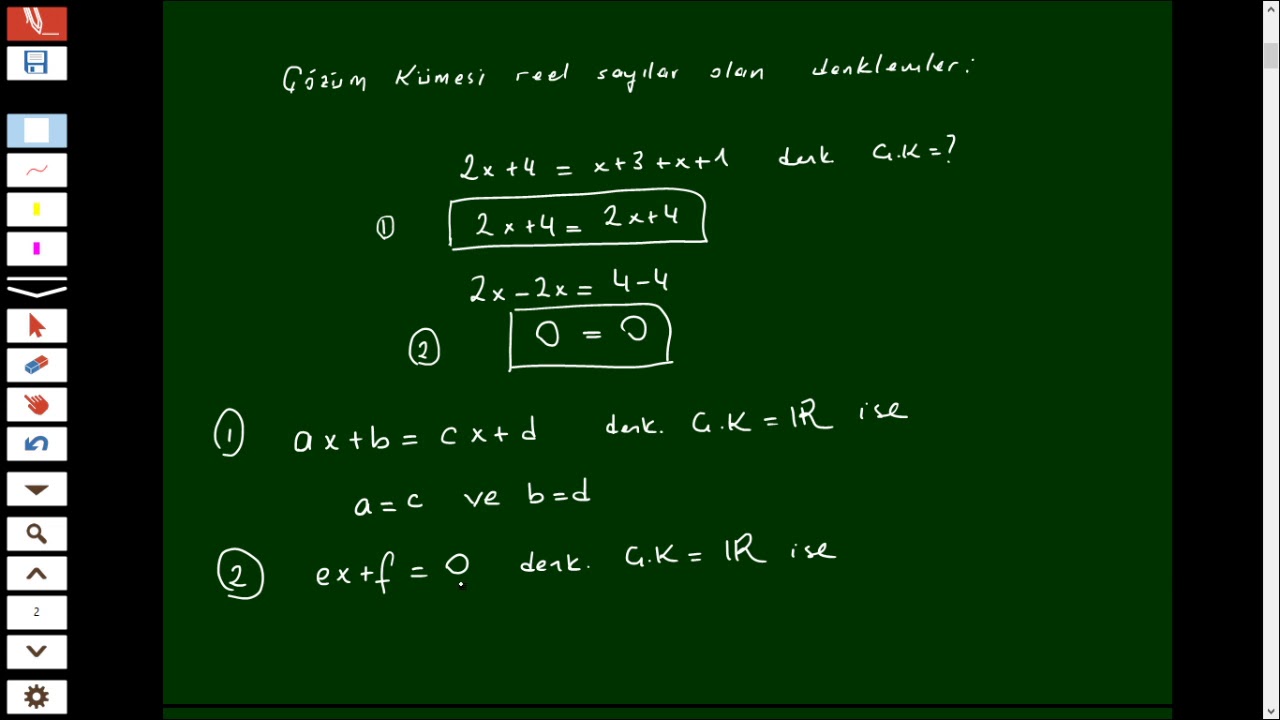 Çözüm Kümesi reel sayılar olan denklemler:
2x+4 = x+3+x+1 denk Ç.K=?
① 2x+4 = 2x+4
2x-2x = 4-4
② 0 = 0
① ax+b = cx+d denk. Ç.K = ℝ ise
a=c ve b=d
② ex+f = 0 denk. Ç.K = ℝ ise
2